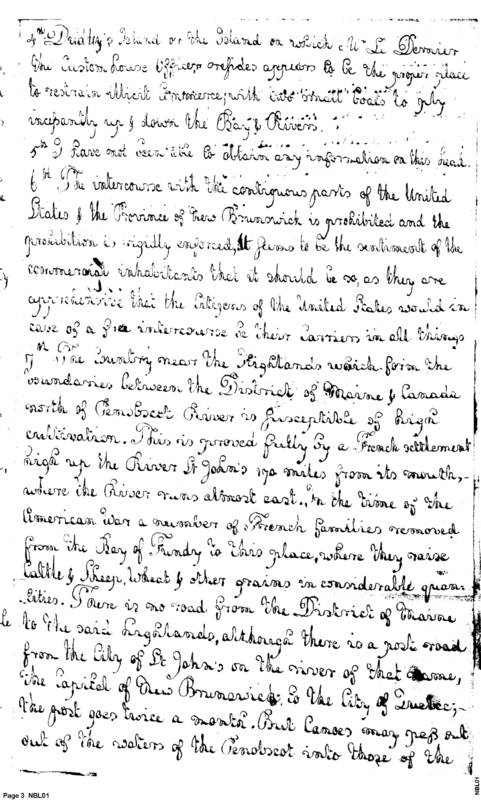 4th Dudley's Island or the Island on which Mr Le Dernier
the Custom house Officer resides appears to be the proper place
to restrain illicit Commerce, with two small boats to ply
incessantly up & down the Bay & Rivers.
5th I have not been able to obtain any information on this head.
6th The intercourse with the contiguous parts of the United
States & the Province of New Brunswick is prohibited and the
prohibition is rigidly enforced, It seems to be the sentiment of the
commercial inhabitants that it should be so, as they are
apprehensive that the Citizens of the United States would in
case of a free intercourse be their Carriers in all things
7th The Country near the Highlands which form the
boundaries between the District of Maine & Canada
north of Penobscot River is susceptible of high
cultivation. This is proved fully by a French settlement
high up the River St John's 170 miles from its mouth,-
where the River runs almost east. In the time of the
American War a number of French families removed
from the Bay of Fundy to this place, where they raise
Cattle & Sheep, Wheat & other grains in considerable quan
tities. There is no road from the District of Maine
to the said highlands, although there is a post road
from the City of St John's on the river of that name,
the Capital of New Brunswick, to the City of Quebec;-
the post goes twice a month. But Canoes may pass out
out of the waters of the Penobscot into those of the
Page 3 NBL01
NBL01